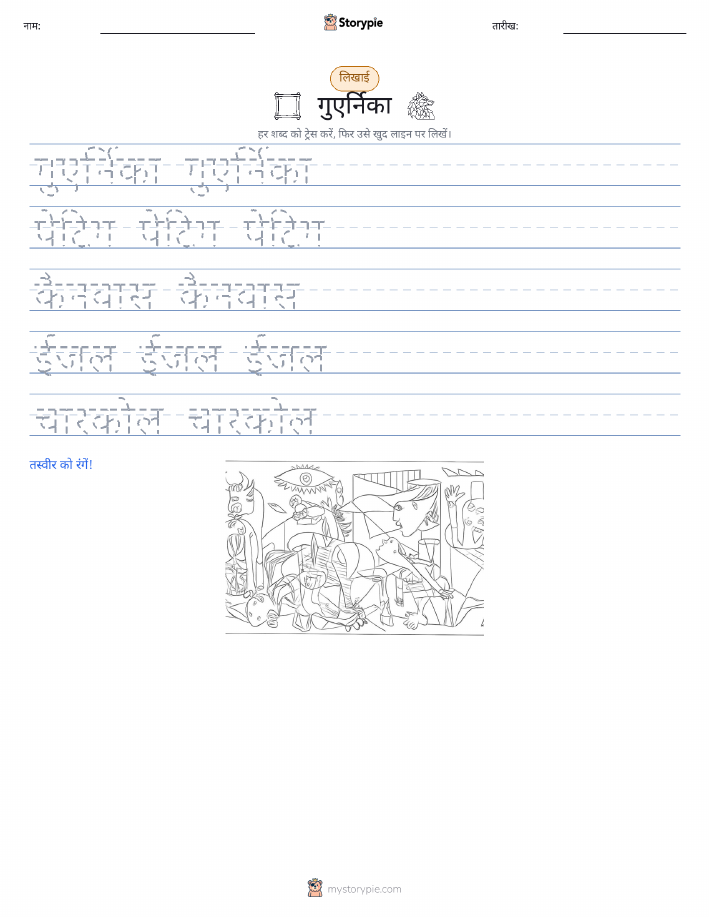 नाम: Storypie तारीख:
लिखाई
गुएर्निका
हर शब्द को ट्रेस करें, फिर उसे खुद लाइन पर लिखें।
गुएर्निका गुएर्निका
पेंटिंग पेंटिंग पेंटिंग
कैनवास कैनवास
ईजल ईजल ईजल
चारकोल चारकोल
तस्वीर को रंगें!
mystorypie.com